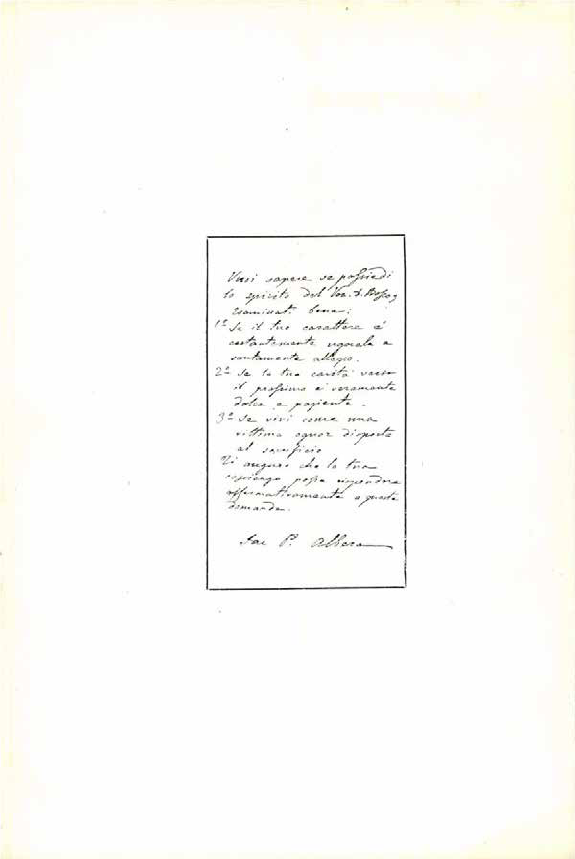 Vuoi sapere se possiedi
lo spirito del Ven. D. Bosco,
esaminati bene:
1º Se il tuo carattere è
costantemente uguale e
santamente allegro.
2º Se la tua carità verso
il prossimo è veramente
dolce e paziente.
3º Se vivi come una
vittima ognor disposta
al sacrificio
Ti auguro che la tua
coscienza possa rispondere
affermativamente a queste
domande.
Sac P. Albera